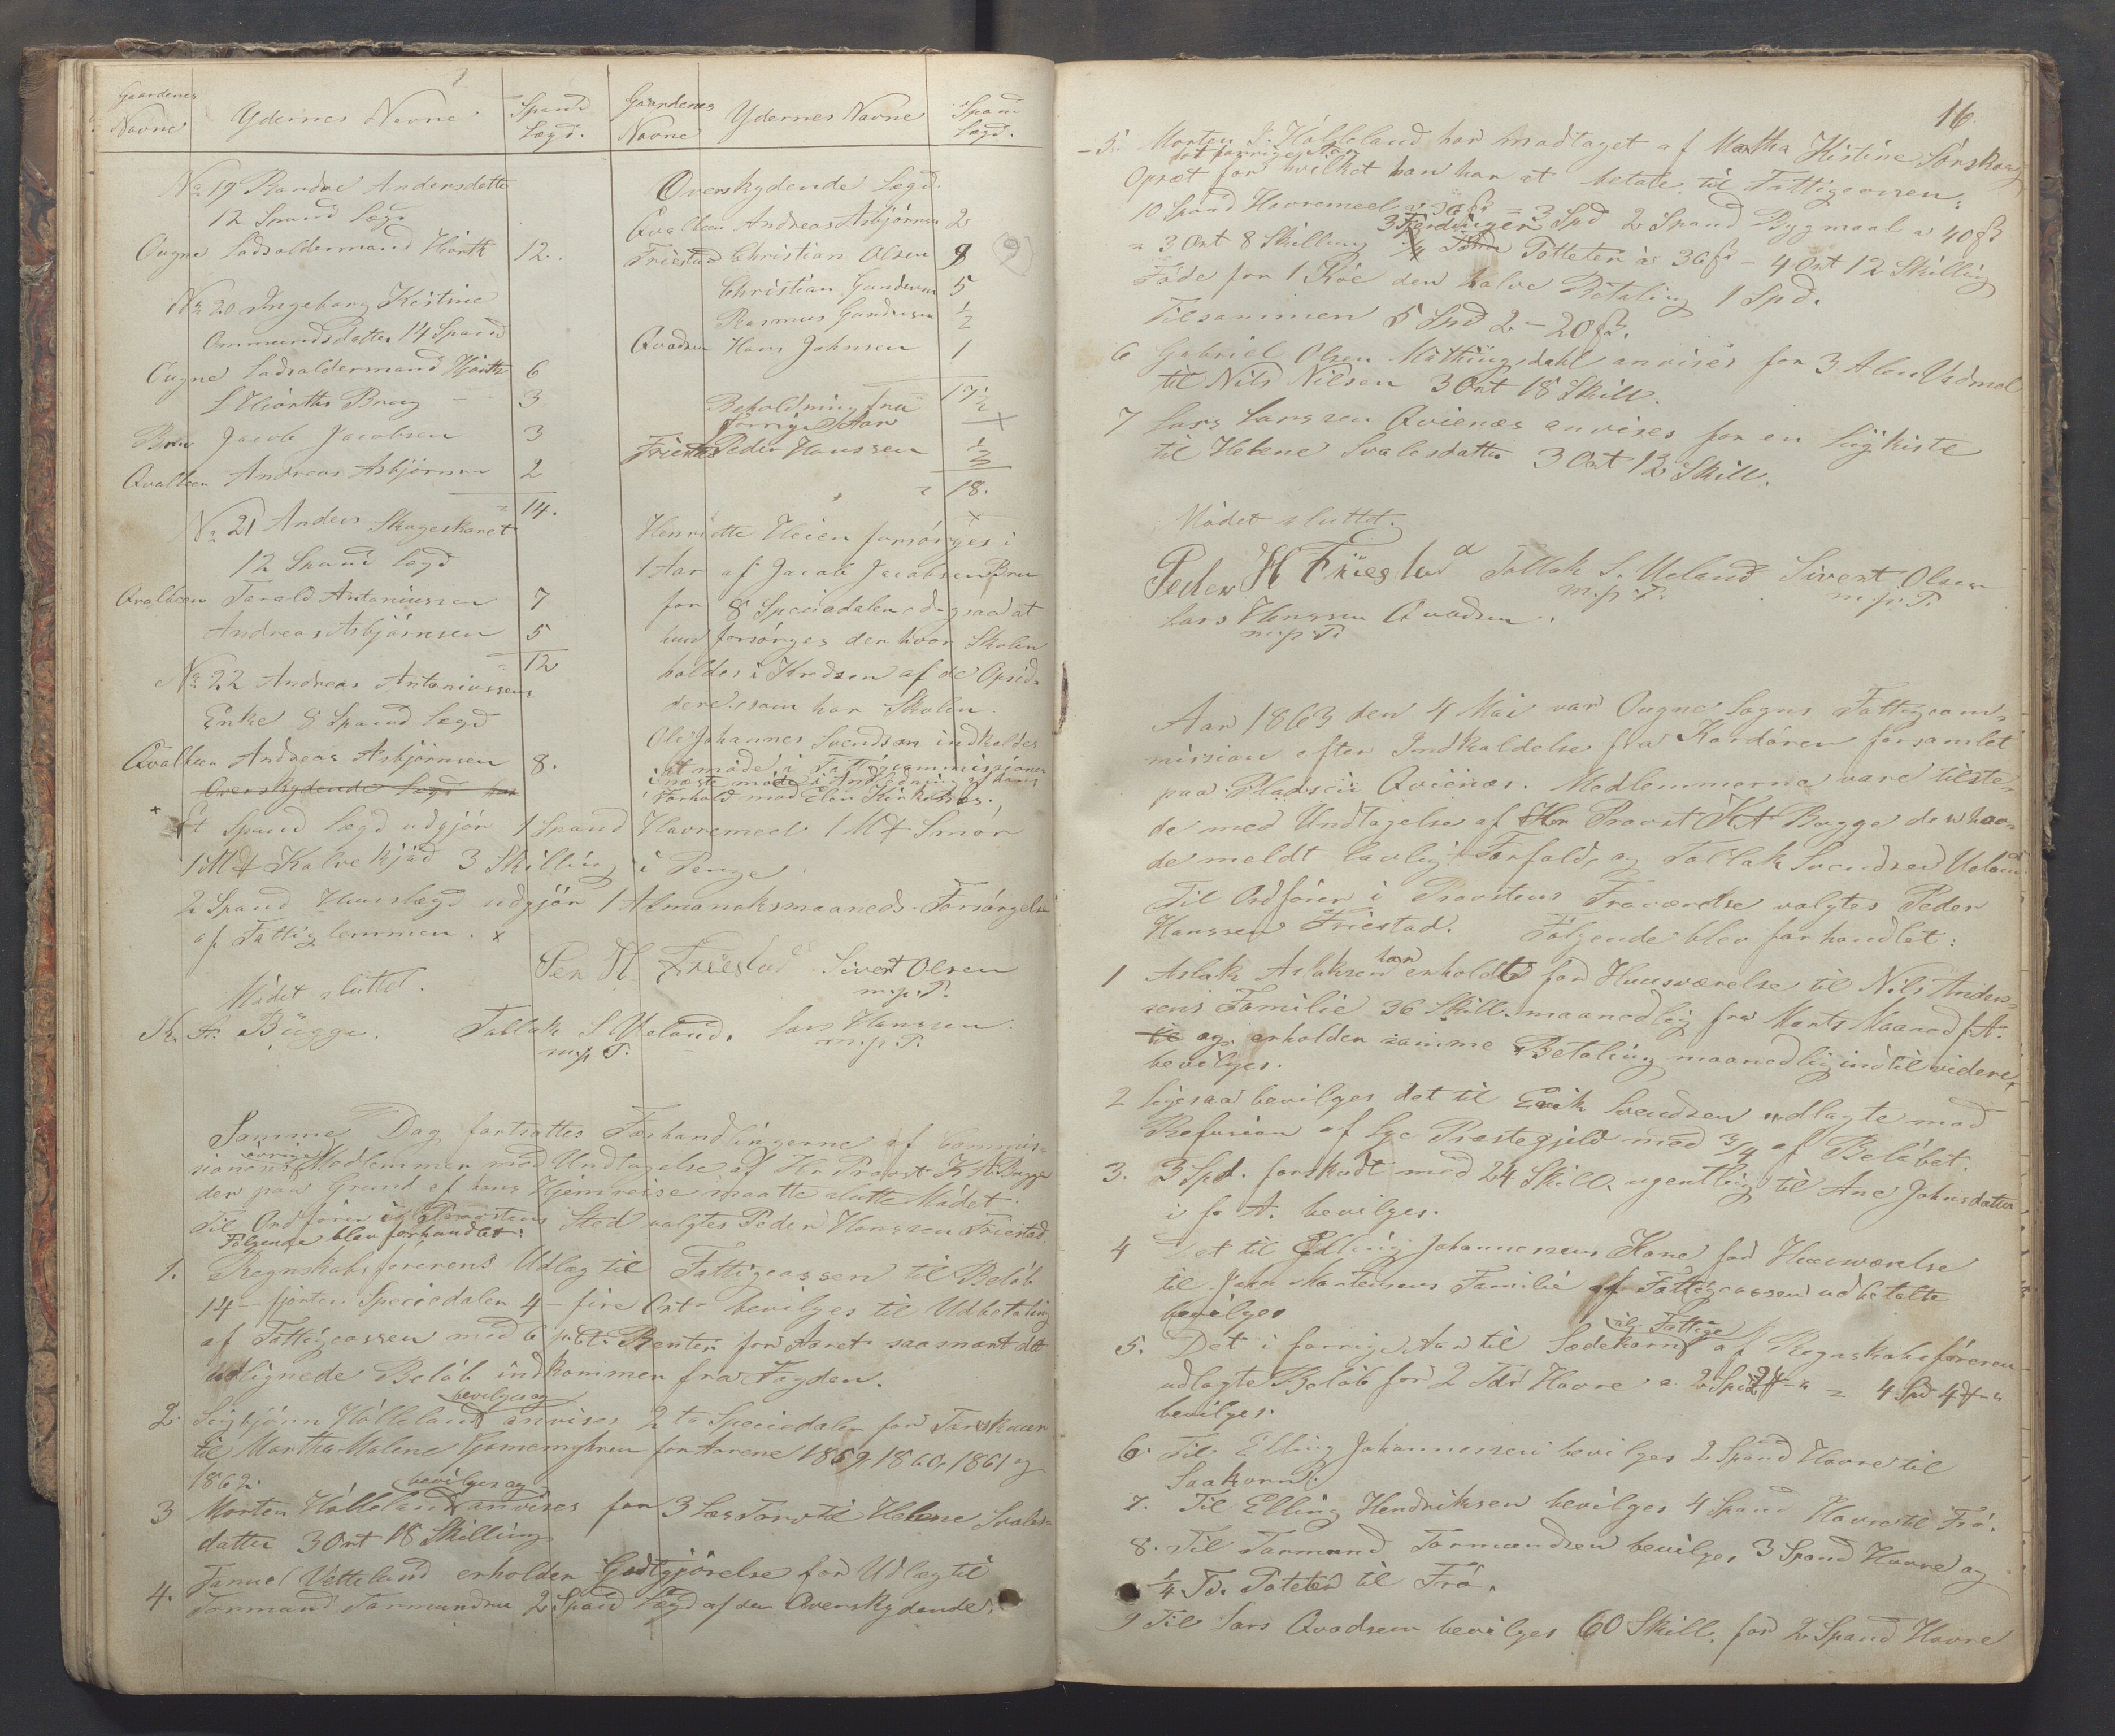 Gaardenes
Navne
Ydernes Navne
Spand
Lægd.
No 19 Randve Andersdatter
12 Spand Lægd
Ougne Ladsoldermand Hiorth 12.
No 20 Ingeborg Kistine
Ommundsdatter 14 Spand
Ougne Ladsoldermand Hiorth 6
L Hiorths Brug - - 3
Bru Jacob Jacobsen 3
Qvalbein Andreas Asbjørnsen 2
= 14.
No 21 Anders Skageskaret
12 Spand Lægd
Qvalbein Tarald Antoniussen 7
Andreas Asbjørnsen 5
= 12
No 22 Andreas Antoniussens
Enke 8 Spand Lægd
Qvalbein Andreas Asbjørnsen 8.
Overskydende Lægd
Gaardenes
Navne
Ydernes Navne
Spand
Lægd.
Overskydende Lægd.
Qvalbein Andreas Asbjørnsen 2
Friestad Christian Olsen 9
Christian Gundersen 5
Rasmus Gundersen 1/2
Qvadsen Hans Johnsen 1
17 1/2
Beholdning fra
forrige Aar
Friestad Peder Hanssen 1/2
= 18.
Henriette Heien forsørges i
1 Aar af Jacob Jacobsen Bru
for 8 Speciedaler dog saa at
hun forsørges der hvor Skolen
holdes i Kredsen af de Opsid-
dere som har Skolen.
Ole Johannes Svendsen indkaldes
at møde i Fattigcommissionen
i næste møde i Anledning af hans
Forhold mod Elen Kirkenes.
x Et Spand Lægd udgjør 1 Spand Havremeel 1 Mk Smør
1 Mk Kalvekjød 3 Skilling i Penge.
2 Spand Huuslægd udgjør 1 Almanaksmaaneds Forsørgelse
af Fattiglemmen. x
Mødet sluttet.
Per H. Friestad Sivert Olsen
m. p. P.
K. A. Bügge. Tallak S Ueland. Lars Hanssen
m. p. P. m. p. P.
Samme Dag fortsattes Forhandlingerne af Commis-
sionens øvrige Medlemmer med Undtagelse af Hr Provst K A Bugge
der paa Grund af hans Hjemreise maatte slutte Mødet.
Til Ordfører i Provstens Sted valgtes Peder Hanssen Friestad.
Følgende blev forhandlet:
1. Regnskabsførerens Udlæg til Fattigcassen til Beløb
14 - fjorten Speciedaler 4 - fire Ort bevilges til Udbetaling
af Fattigcassen med 6 pCt. Renter for Aaret saasnart det
udlignede Beløb indkommer fra Fogden.
2. Sigbjørn Hølleland bevilges og anvises 2 to Speciedaler for Torvskuur
til Martha Malene Gamemyhren for Aarene 1859 1860, 1861 og
1862.
3 Morten Hølleland bevilges og anvises for 3 Læs Torv til Helene Svales-
datter 3 Ort 18 Skilling
4. Tønnes Vetteland erholder Godtgjørelse for Udlæg til
Tormand Tarmundsen 2 Spand Lægd af den Overskydende.
16.
- 5. Morten S. Hølleland har modtaget af Martha Kistine Sørskaug
det forrige Aar
Opræt for hvilket han har at betale til Fattigcassen:
10 Spand Havremeel a 36 ß = 3 Spd 2 Spand Bygmaal a 40 ß
= 3 Ort 8 Skilling 3 Fjerdinger 1/4 Tønde Potteter a 36 ß - 4 Ort 12 Skilling
Føde for 1 Koe den halve Betaling 1 Spd.
Tilsammen 5 Spd 2 - 20 ß.
6 Gabriel Olsen Mattingsdahl anvises for 3 Alen Vadmel
til Nils Nilsen 3 Ort 18 Skill.
7 Lars Larssen Qvienæs anvises for en Liigkiste
til Helene Svalesdatter 3 Ort 12 Skill.
Mødet sluttet.
Peder H Friestad Tallak S. Ueland Sivert Olsen
m. p. P. m. p. P.
Lars Hanssen Qvadsen.
m. p. P.
Aar 1863 den 4 Mai var Ougne Sogns Fattigcom-
mission efter Indkaldelse fra Ordføren forsamlet
paa Pladsen Qvienæs. Medlemmerne vare tilste-
de med Undtagelse af Hr Provst K A Bugge der hav-
de meldt lovligt Forfald, og Tallak Svendsen Ueland.
Til Ordfører i Provstens Fraværelse valgtes Peder
Hanssen Friestad. Følgende blev forhandlet:
1 Aslak Aslaksen har erholdt for Huusværelse til Nils Anders-
sens Familie 36 Skill. maanedlig fra Marts Maaned f. A.
til og erholder samme Betaling maanedlig indtil videre,
bevilges.
2 Ligesaa bevilges det til Erik Svendsen udlagte med
Refusion af Lye Præstegjeld med 3/4 af Beløbet.
3. 3 Spd. forskudt med 24 Skill. ugentlig til Ane Johnsdatter
i f. A. bevilges.
4 Det til Elling Johannessens Kone for Huusværelse
til John Mortensens Familie af Fattigcassen udbetalte
bevilges
5. Det i forrige Aar til Sædekorn til Fattige af Regnskabsføreren
udlagte Beløb for 2 Tdr Havre a 2 Spd 2 # - " = 4 Spd 4 # - "
bevilges.
6. Til Elling Johannessen bevilges 2 Spand Havre til
Saakorn.
7. Til Elling Hendriksen bevilges 4 Spand Havre til Frø.
8. Til Tarmund Tormundsen bevilges 3 Spand Havre og
1/4 Td. Poteter til Frø.
9 Til Lars Qvadsem bevilges 60 Skill. for 2 Spand Havre